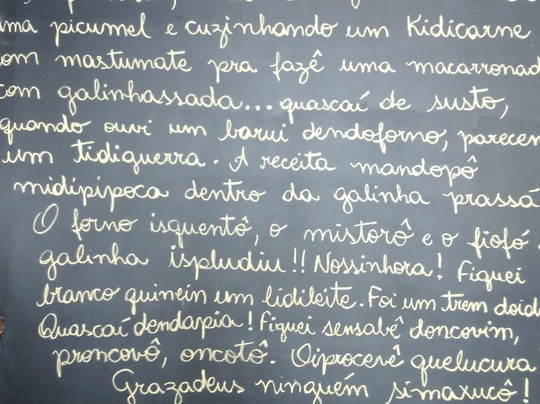 uma picumel e cuzinhando um Kidicarne
om mastumate pra fazê uma macarronad
com galinhassada... quascaí de susto,
quando ouvi um barui dendoforno, parecen
um tidiguerra. A receita mandopô
midipipoca dentro da galinha prassá
O forno isquentô, o mistorô e o fiofó
galinha ispludiu!! Nossinhora! Fiquei
branco quinein um lidileite. Foi um trem doid
Quascaí dendapia! Fiquei sensabê doncovim,
proncovô, oncotô. Oiprocevê quelucura
Grazadeus ninguém simaxucô!